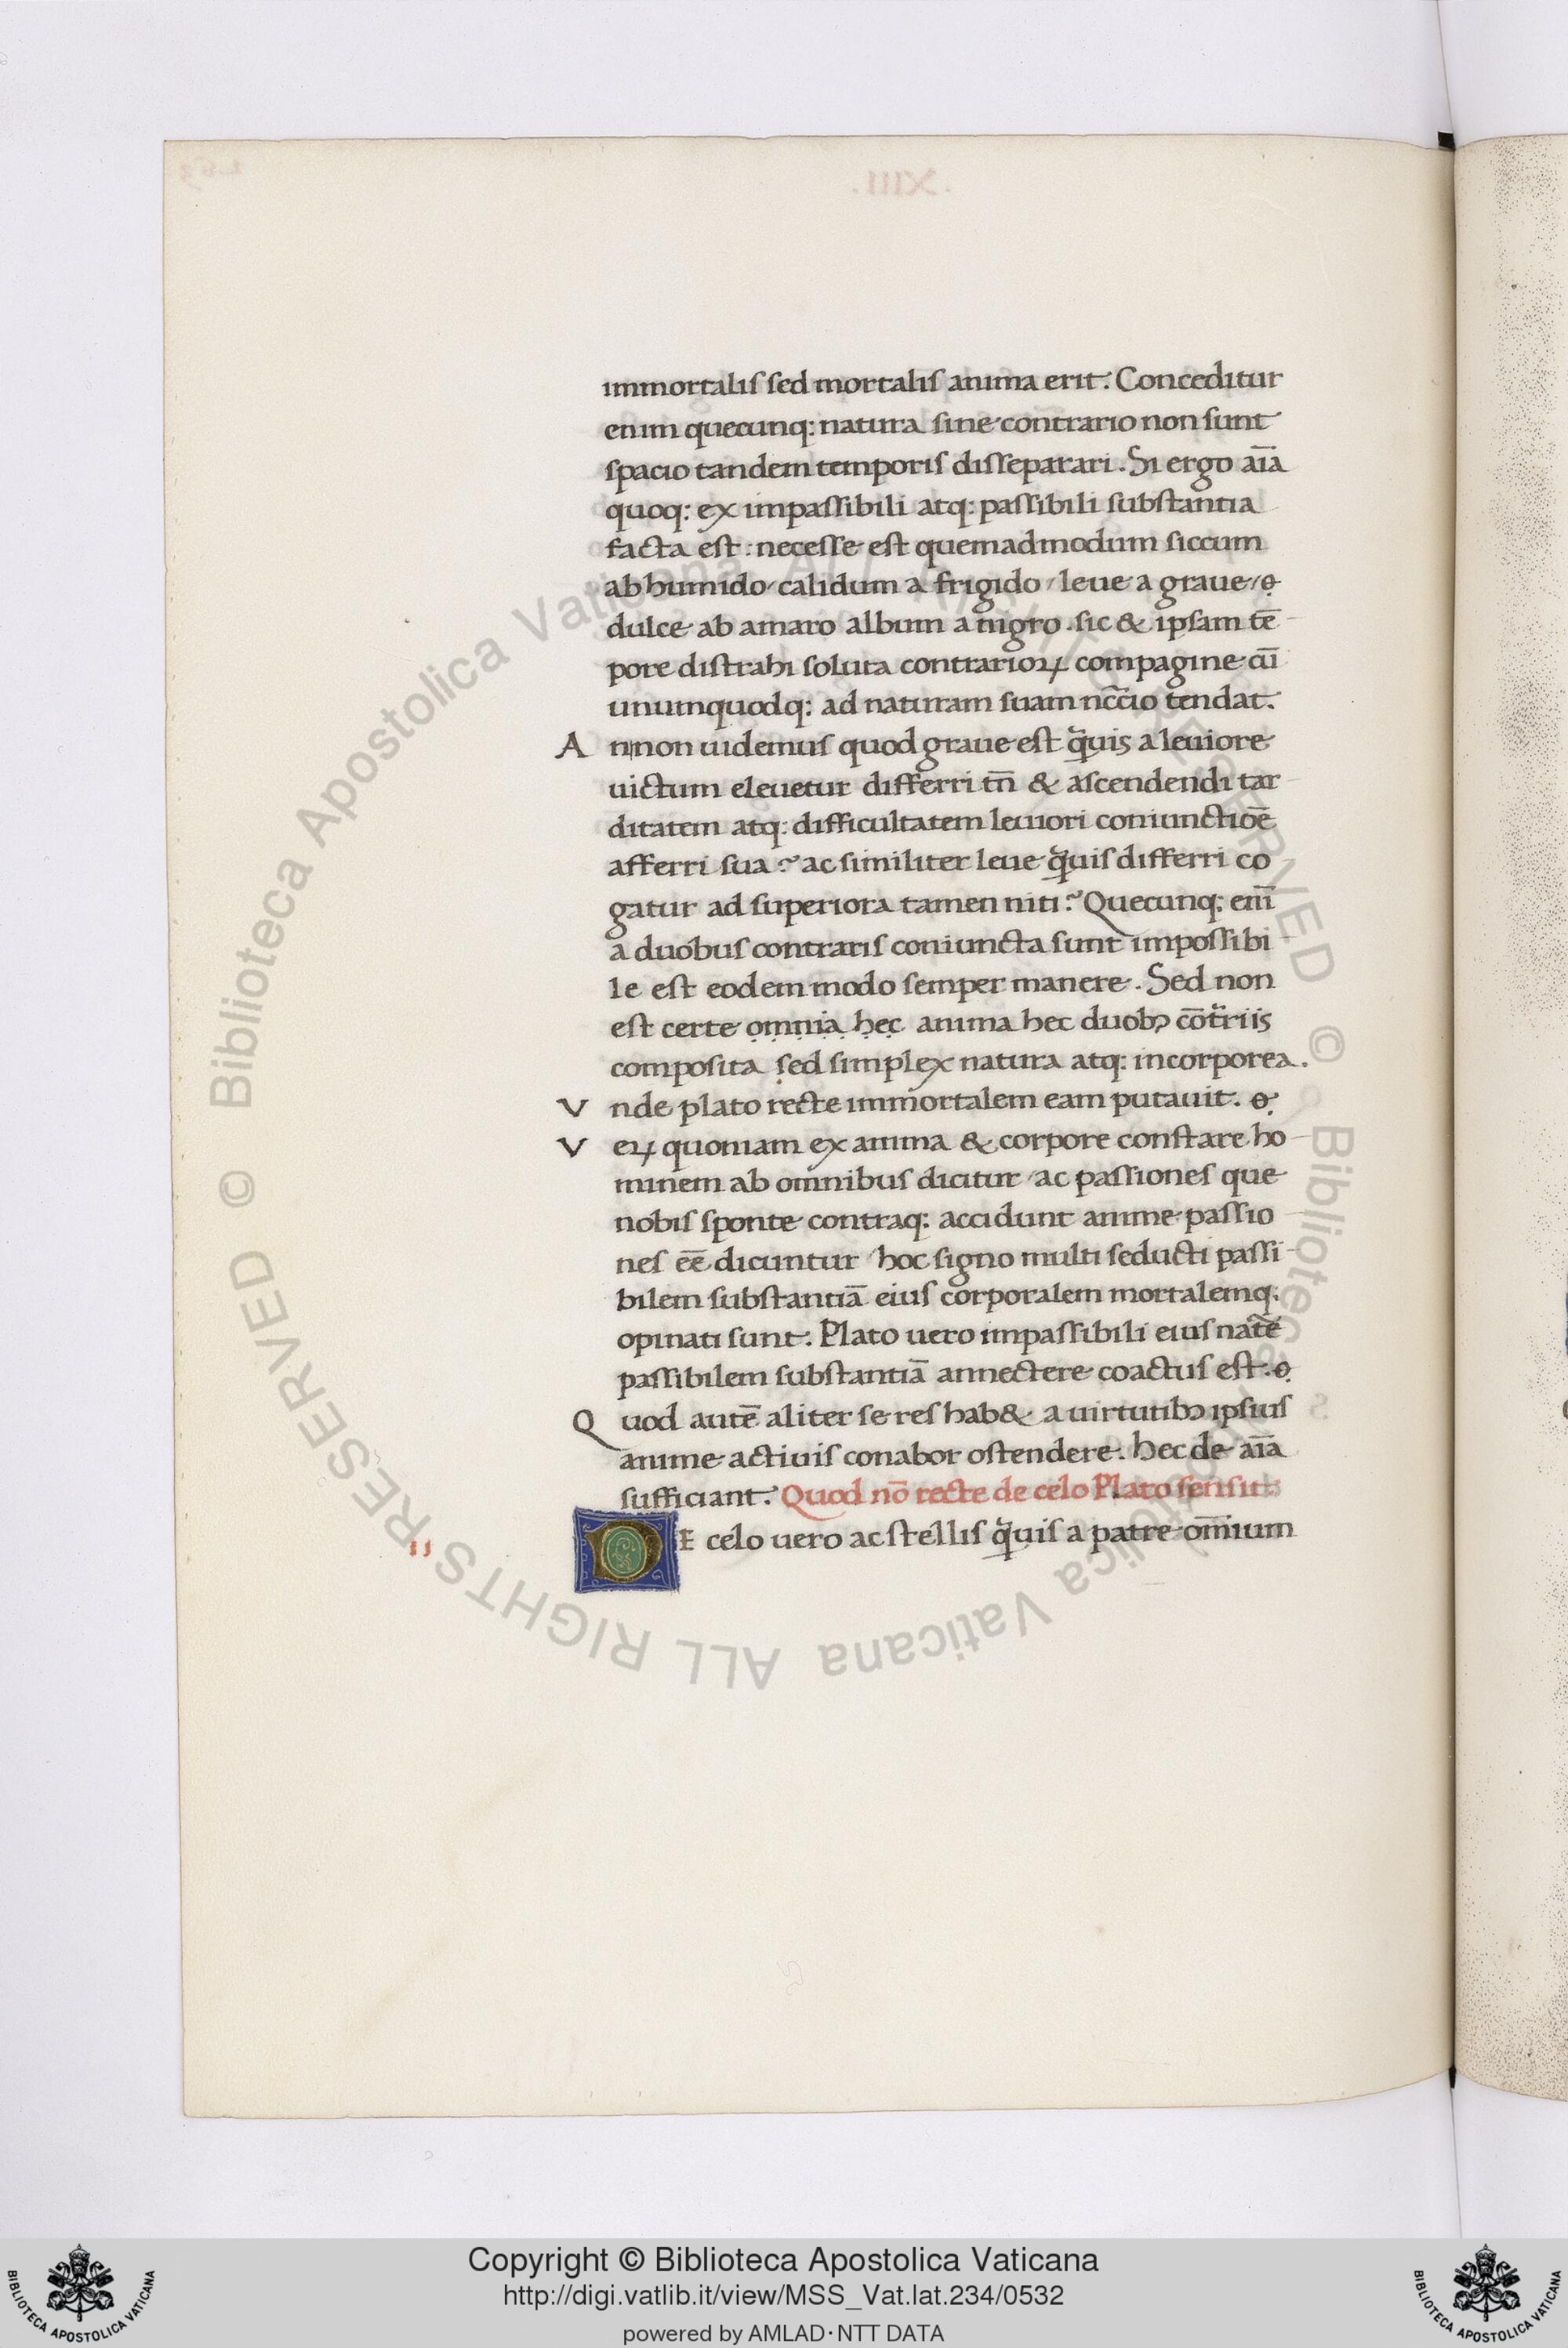 immortalis sed mortalis anima erit. Conceditur
enim quecunq: natura sine contrario non sunt
spacio tandem temporis disseparari. Si ergo aīa
quoq: ex impassibili atq: passibili substantia
facta est: necesse est quemadmodum siccum
ab humido calidum a frigido / leue a graue /
dulce ab amaro album a nigro. sic & ipsam tē
pore distrahi soluta contrarioꝝ compagine cū
unumquodq: ad naturam suam nc̄cio tendat.
A nnon uidemus quod graue est q̄uis a leuiore
uictum eleuetur differri tn̄ & ascendendi tar
ditatem atq: difficultatem leuiori coniunctiōē
afferri sua? ac similiter leue q̄uis differri co
gatur ad superiora tamen niti? Quecunq: eni̅
a duobus contrariis coniuncta sunt impossibi
le est eodem modo semper manere. Sed non
est certe omnia hec anima hec duobꝫ cōtriis
composita sed simplex natura atq: incorporea.
V nde plato recte immortalem eam putauit.
V eꝝ quoniam ex anima & corpore constare ho
minem ab omnibus dicitur / ac passiones que
nobis sponte contraq: accidunt anime passio
nes eē dicuntur / hoc signo multi seducti passi
bilem substantiā eius corporalem mortalemq:
opinati sunt. Plato uero impassibili eius nat̄e
passibilem substantiā annectere coactus est.
Q uod autē aliter se res hab& a uirtutibꝫ ipsius
anime actiuis conabor ostendere. hec de aīa
sufficiant. Quod nō recte de celo Plato sensit:
DE celo uero ac stellis q̄uis a patre om̄ium
© Biblioteca Apostolica Vaticana ALL RIGHTS RESERVED © Biblioteca Apostolica Vaticana ALL RIGHTS RESERVED
Copyright © Biblioteca Apostolica Vaticana
http://digi.vatlib.it/view/MSS_Vat.lat.234/0532
powered by AMLAD·NTT DATA
BIBLIOTECA APOSTOLICA VATICANA
BIBLIOTECA APOSTOLICA VATICANA